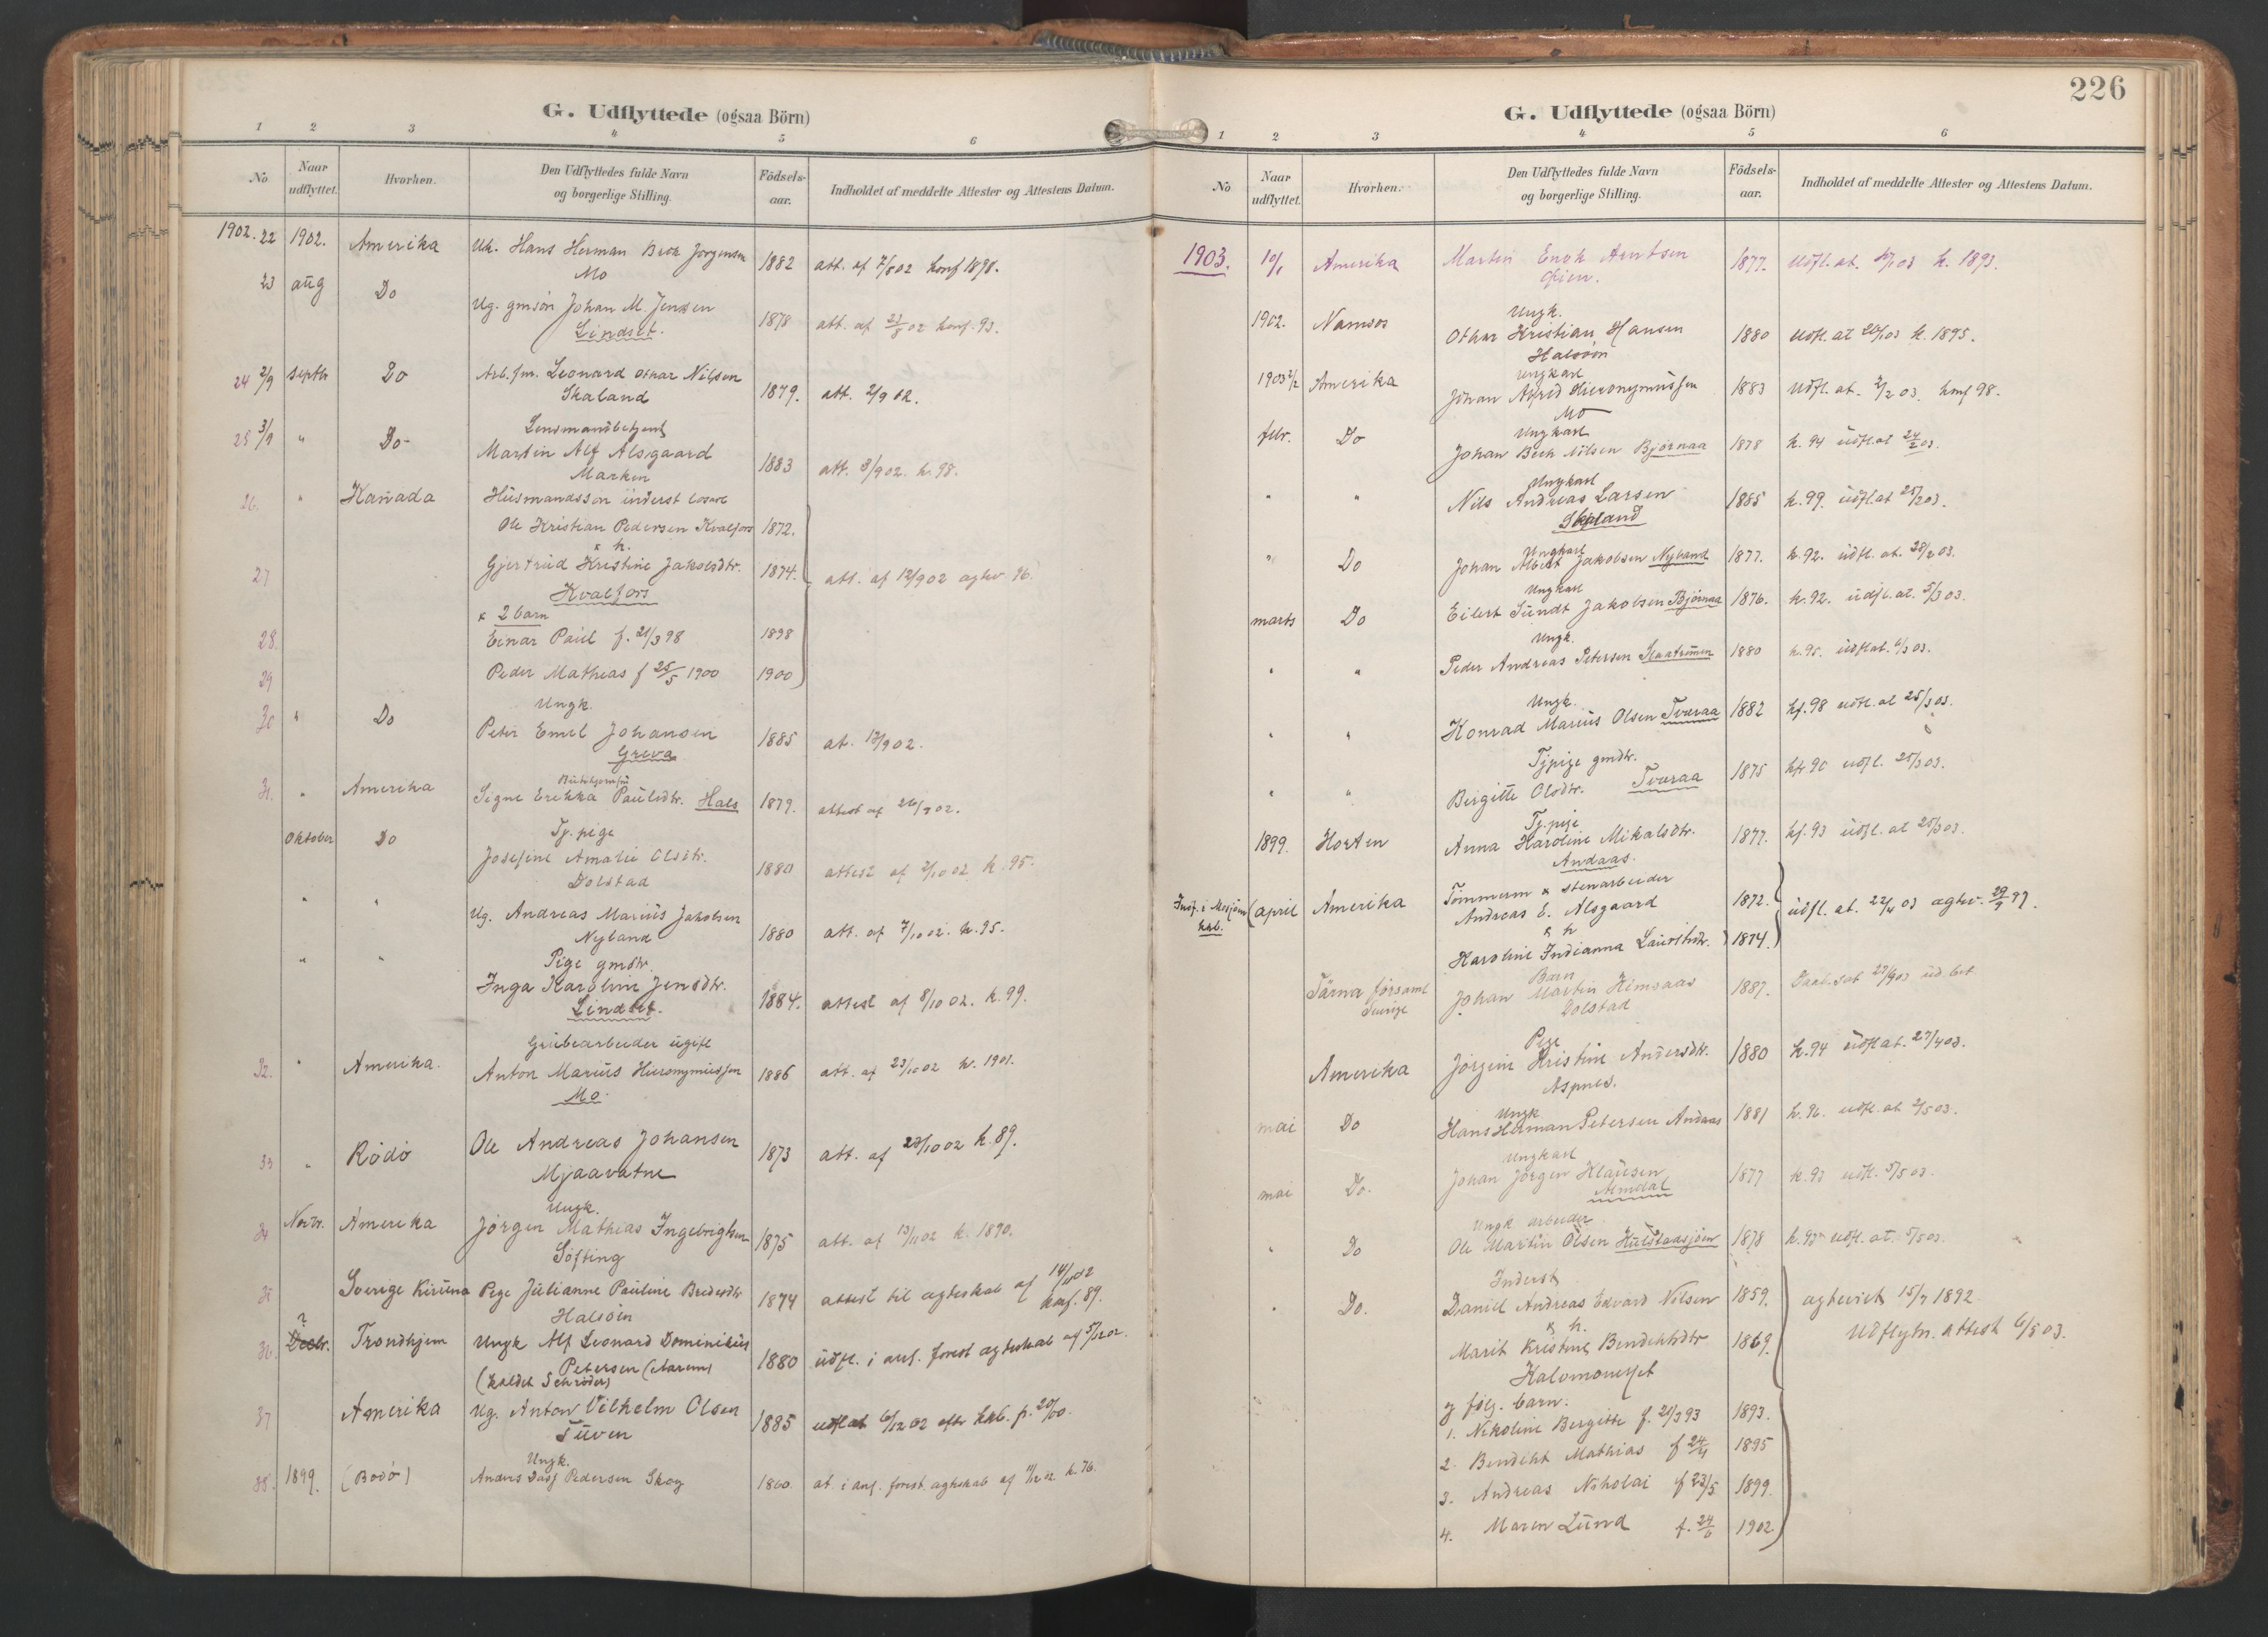 G. Udflyttede (ogsaa Börn)
1 2 3 4 5 6
No Naar udflyttet. Hvorhen. Den Udflyttedes fulde Navn og borgerlige Stilling. Födsels-aar. Indholdet af meddelte Attester og Attestens Datum.
1902. 22 1902. Amerika Uk. Hans Herman Bech Jørgensen 1882 att. af 7/8 02 konf 1898.
Mo
23 aug Do Ug. gmsön Johan M. Jenssen 1878 att. af 23/8 02 konf. 93.
Lindset.
24 2/9 septbr Do Arb. fm. Leonard Othar Nilsen 1879. att. 2/9 02.
Skaland
25 3/9 " Do Lensmandsbetjent
Martin Alf Alsgaard 1883 att. 3/9 02. k. 98.
Marken
26. " Kanada Husmandssøn inderst
Ole Kristian Pedersen Kvalfors 1872.
x h.
27 Gjertrud Kristine Jakobsdtr. 1874. att. af 12/9 02 agtev 96.
Kvalfors
x 2 barn
28. Einar Paul f. 21/3 98 1898
29 Peder Mathias f 25/5 1900 1900
30 " Do Ungk.
Peter Emil Johansen 1885 at. 13/9 02.
Greva
31. " Amerika
Signe Erikka Paulsdtr. Hals 1879. attest af 26/9 02.
Oktober Do Tj. pige
Josefine Amalie Olsdtr. 1880 attest af 2/10 02 k. 95.
Dolstad
" " Ug. Andreas Marius Jakobsen 1880 att. af 7/10 02. k. 95.
Nyland
" " Pige gmdtr.
Inga Karoline Jensdtr. 1884. attest af 8/10 02. k. 99.
Lindset.
32. " Amerika. Grubearbeider ugift
Anton Marius Hieronymussen 1886 att. af 23/10 02 k. 1901.
Mo.
33 " Rödö Ole Andreas Johansen 1873 att. af 28/10 02 k. 89.
Mjaavatne
34 Novbr. Amerika Ungk.
Jørgen Mathias Ingebrigtsen 1875 att. af 13/11 02 k. 1890.
Söfting
35 Sverige Kiruna Pige Julianne Pauline Bredesdtr 1874 attest til agteskab af 14/11 02 konf. 89.
Halsöen
36. ? Decbr. Trondhjem Ungk Alf Leonard Dominikus 1880 udfl. i anl. forest agteskab af 5/12 02.
Petersen (Marum)
(kaldet Schrøder)
37 Amerika Ug. Anton Vilhelm Olsen 1885 udflat 6/12 02 efter kkb. p. 20/00.
Tuven
38. 1899. (Bodö) Ungk.
Anders Dass Pedersen Skog 1860. at. i anl. forest. agteskab af 11/12 02 k. 76.
226
G. Udflyttede (ogsaa Börn)
1 2 3 4 5 6
No Naar udflyttet. Hvorhen. Den Udflyttedes fulde Navn og borgerlige Stilling. Födsels-aar. Indholdet af meddelte Attester og Attestens Datum.
1903. 10/1 Amerika Martin Enok Arntsen 1877. udfl. at. 10/1 03 k. 1893.
Öien.
1902. Namsos Ungk.
Othar Kristian Hansen 1880 udfl. at 20/1 03 k. 1895.
Halsöen
1903 2/2 Amerika Ungkarl
Johan Alfred Hieronymussen 1883 udfl. at. 2/2 03. konf 98.
Mo
febr. Do Ungkarl
Johan Bech Nilsen Bjørnaa 1878 k. 94 udfl. at 24/2 03.
" " Ungkarl
Nils Andreas Larsen 1885 k. 99. udfl. at 25/2 03.
Skaland
" Do Ungkarl
Johan Albert Jakobsen Nyland 1877. k. 92. udfl. at. 28/2 03.
marts Do Ungkarl
Eilert Sundt Jakobsen Bjørnaa 1876. k. 92. udfl. at. 5/3 03.
" " Ungk.
Peder Andreas Petersen 1880 k. 95. udfl at. 6/3 03.
" " Ungk.
Konrad Marius Olsen Tveraa 1882 kf. 98 udfl. at 25/3 03.
" " Tjpige gmdtr.
Birgitte Olsdtr. Tveraa 1875 kfr 90 udfl. 25/3 03.
1899. Horten Tj. pige
Anna Karoline Mikalsdtr. 1877. kf. 93 udfl. at 25/3 03.
Andaas.
Indf. i Mosjøen kkb. (april Amerika Tömmerm & stenarbeider
Andreas E. Alsgaard 1872. udfl. at. 22/4 03 agtev. 29/9 97.
& h
Karoline Indianna Lauritsdtr. 1874.
Tärna församl Sverige Barn
Johan Martin Kimsaas 1887. 27/4 03 ud. bet
Dolstad
Amerika Pige
Jørgine Kristine Andersdtr. 1880 k. 94 udfl at. 27/4 03.
Aspnes.
mai Do Ungk
Hans Herman Petersen Andaas 1881 k. 96. udfl. at 2/5 03.
mai Do. Ungkarl
Johan Jørgen Klausen 1877 k. 93 udfl. 5/5 03.
Almdal
" Do Ungk. arbeider
Ole Martin Olsen Kulstadsjøen 1878 k. 93 udfl. at. 5/5 03.
" Do. Inderst
Daniel Andreas Edvard Nilsen 1859. agteviet 15/7 1892
& h.
Marit Kristine Bendiktsdtr 1869. Udflytn. attest 6/5 03.
g følg. barn.
1. Nikoline Bergitte f. 21/3 93 1893.
2. Bendikt Mathias f 24/4 1895
3. Andreas Nikolai f 23/5 1899.
4. Maren Lund f. 24/6 1902